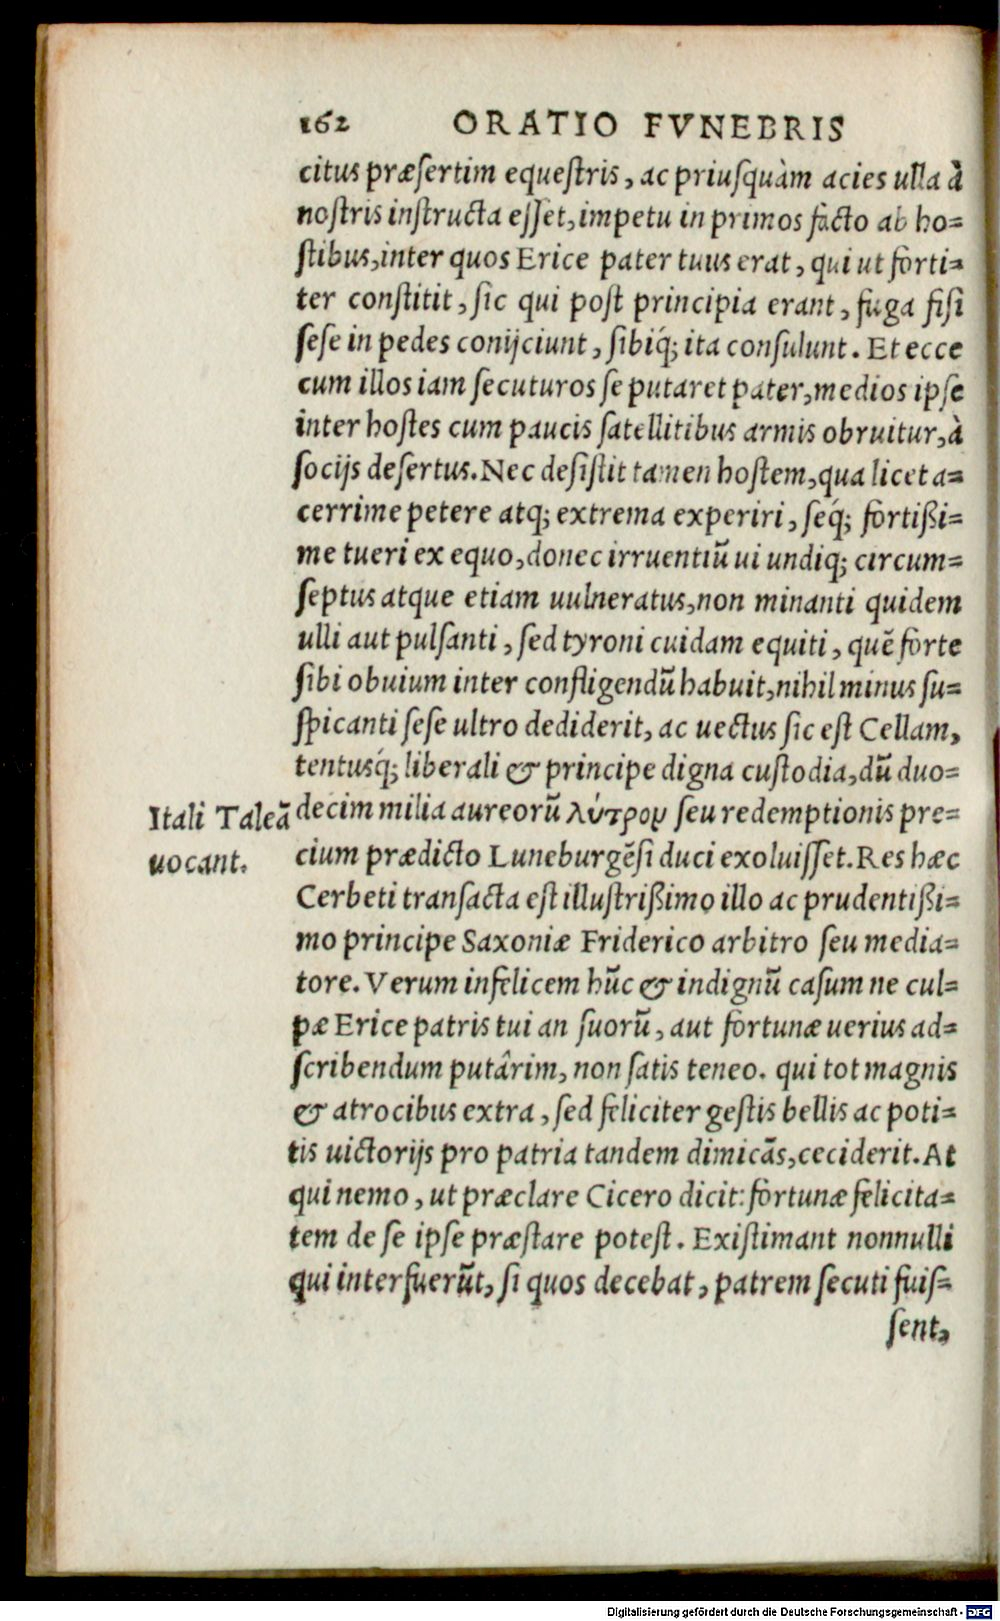 162 ORATIO FVNEBRIS
citus præsertim equestris, ac priusquàm acies ulla à
nostris instructa esset, impetu in primos facto ab ho=
stibus, inter quos Erice pater tuus erat, qui ut forti=
ter constitit, sic qui post principia erant, fuga fisi
sese in pedes conijciunt, sibiq́; ita consulunt. Et ecce
cum illos iam secuturos se putaret pater, medios ipse
inter hostes cum paucis satellitibus armis obruitur, à
socijs desertus. Nec desistit tamen hostem, qua licet a=
cerrime petere atq; extrema experiri, seq́; fortißi=
me tueri ex equo, donec irruentiũ ui undiq; circum=
septus atque etiam uulneratus, non minanti quidem
ulli aut pulsanti, sed tyroni cuidam equiti, quẽ forte
sibi obuium inter confligendũ habuit, nihil minus su=
spicanti sese ultro dediderit, ac uectus sic est Cellam,
tentusq́; liberali & principe digna custodia, dũ duo=
Itali Taleã
uocant.
decim milia aureorũ λύτρου seu redemptionis pre=
cium prædicto Luneburgẽsi duci exoluisset. Res hæc
Cerbeti transacta est illustrißimo illo ac prudentißi=
mo principe Saxoniæ Friderico arbitro seu media=
tore. Verum infelicem hũc & indignũ casum ne cul=
pæ Erice patris tui an suorũ, aut fortunæ uerius ad=
scribendum putârim, non satis teneo. qui tot magnis
& atrocibus extra, sed feliciter gestis bellis ac poti=
tis uictorijs pro patria tandem dimicãs, ceciderit. At
qui nemo, ut præclare Cicero dicit: fortunæ felicita=
tem de se ipse præstare potest. Existimant nonnulli
qui interfuerũt, si quos decebat, patrem secuti fuis=
sent,
Digitalisierung gefördert durch die Deutsche Forschungsgemeinschaft - DFG